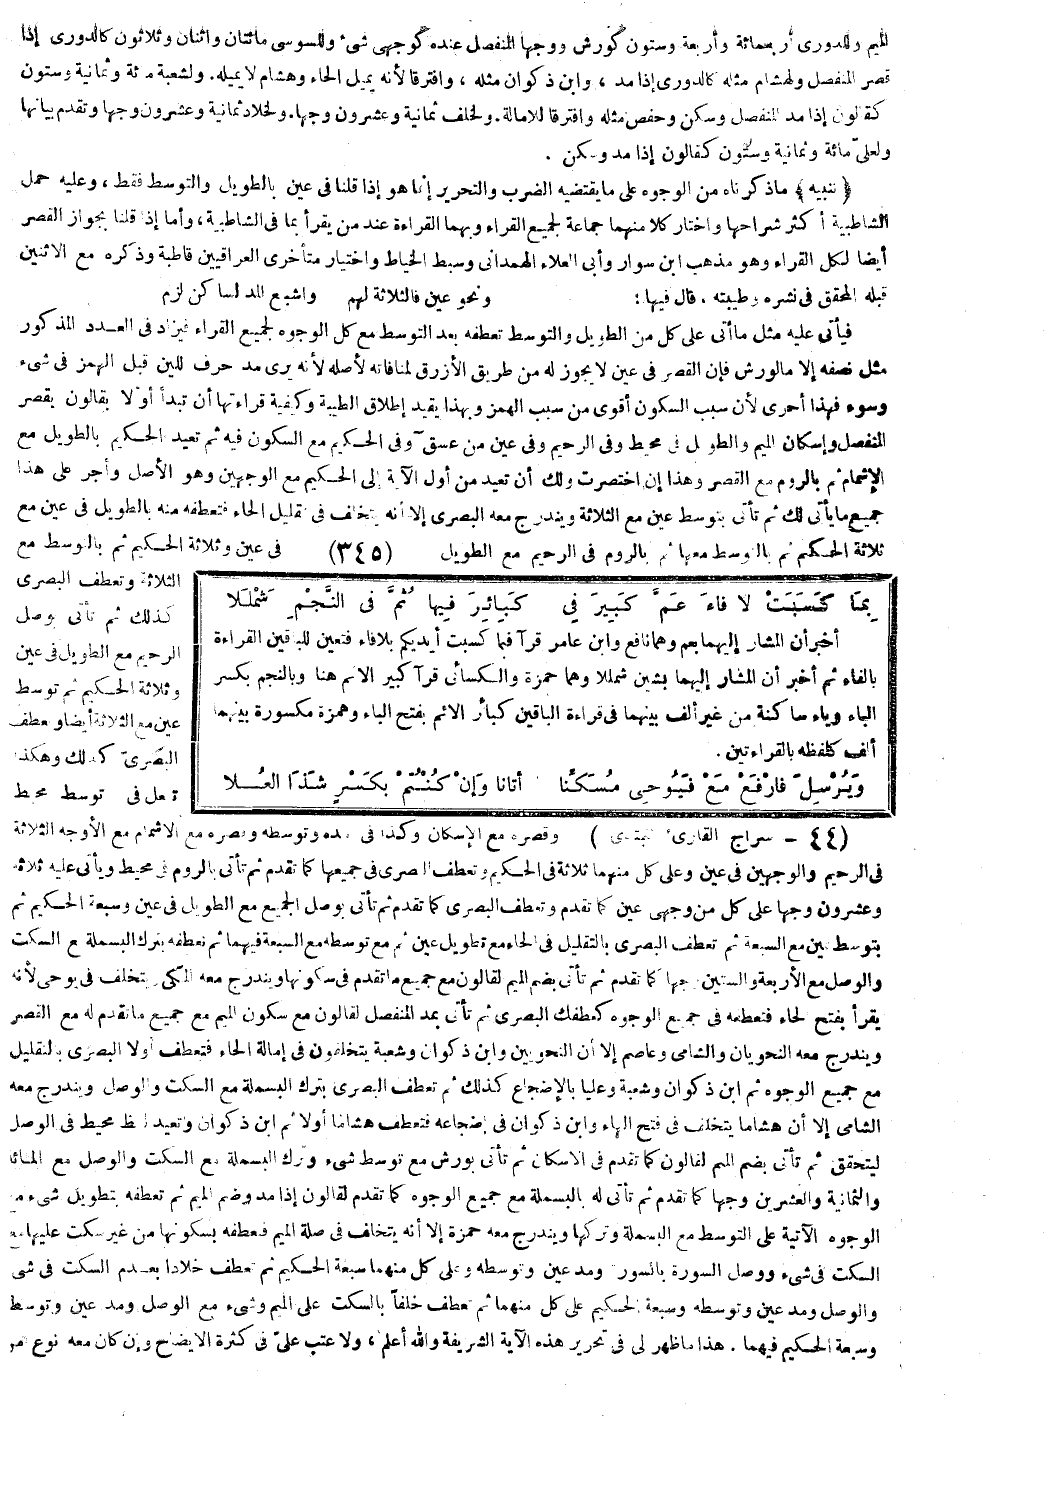 الميم وللدورى أربعمائة وأربعة وستون كورش ووجها المنفصل عنده كوجهى شىء وللسوسى مائتان واثنان وثلاثون كالدورى إذا
قصر المنفصل ولهشام مثله كالدورى إذا مد ، وابن ذكوان مثله ، وافترقا لأنه يميل الحاء وهشام لا يميله. ولشعبة مائة وثمانية وستون
كقالون إذا مد المنفصل وسكن وحفص مثله وافترقا للامالة. ولخلف ثمانية وعشرون وجها. ولخلاد ثمانية وعشرون وجها وتقدم بيانها
ولعلىّ مائة وثمانية وستون كقالون إذا مد وسكن .
﴿ تنبيه ﴾ ماذكرناه من الوجوه على ما يقتضيه الضرب والتحرير إنما هو إذا قلنا فى عين بالطويل والتوسط فقط ، وعليه حمل
الشاطبية أكثر شراحها واختار كلا منهما جماعة لجميع القراء وبهما القراءة عند من يقرأ بما فى الشاطبية ، وأما إذا قلنا بجواز القصر
أيضا لكل القراء وهو مذهب ابن سوار وأبى العلاء الهمدانى وسبط الخياط واختيار متأخرى العراقيين قاطبة وذكره مع الاثنين
قبله المحقق فى نشره وطيبته ، قال فيها :
ونحو عين فالثلاثة لهم واشبع المد لساكن لزم
فيأتى عليه مثل ماأتى على كل من الطويل والتوسط تعطفه بعد التوسط مع كل الوجوه لجميع القراء فيزاد فى العدد المذكور
مثل نصفه إلا مالورش فإن القصر فى عين لا يجوز له من طريق الأزرق لمنافاته لأصله لأنه يرى مد حرف للين قبل الهمز فى شىء
وسوء فهذا أحرى لأن سبب السكون أقوى من سبب الهمز وبهذا يقيد إطلاق الطيبة وكيفية قراءتها أن تبدأ أولا بقالون بقصر
المنفصل وإسكان الميم والطويل فى محيط وفى الرحيم وفى عين من عسق وفى الحكيم مع السكون فيه ثم تعيد الحكيم بالطويل مع
الإشمام ثم بالروم مع القصر وهذا إن اختصرت ولك أن تعيد من أول الآية إلى الحكيم مع الوجهين وهو الأصل وأجر على هذا
جميع ما يأتى لك ثم تأتى بتوسط عين مع الثلاثة ويندرج معه البصرى إلا أنه يتخلف فى تقليل الحاء فتعطفه منه بالطويل فى عين مع
ثلاثة الحكيم ثم بالتوسط معها ثم بالروم فى الرحيم مع الطويل (٣٤٥) فى عين وثلاثة الحكيم ثم بالتوسط مع
الثلاثة وتعطف البصرى
كذلك ثم تأتى بوصل
الرحيم مع الطويل فى عين
وثلاثة الحكيم ثم توسط
عين مع الثلاثة أيضا وعطف
البصرىّ كذلك وهكذا
تفعل فى توسط محيط
بِمَا كَسَبَتْ لا فَاءَ عَمَّ كَبِيرَ فِى كَبَائِرَ فِيهَا ثُمَّ فى النَّجْمِ شَمْلَلا
أخبر أن المشار إليهما بعم وهما نافع وابن عامر قرآ فبما كسبت أيديكم بلافاء فتعين للباقين القراءة
بالفاء ثم أخبر أن المشار إليهما بشين شمللا وهما حمزة والكسائى قرآ كبير الاثم هنا وبالنجم بكسر
الباء وياء ساكنة من غير ألف بينهما فى قراءة الباقين كبائر الاثم بفتح الباء وهمزة مكسورة بينهما
ألف كلفظه بالقراءتين .
وَيُرْسِلَ فارْفَعْ مَعْ فَيُوحِى مُسَكِّنًا أتانا وَإنْ كُنْتُمْ بكَسْرٍ شَذَا العُلا
(٤٤ - سراج القارئ المبتدى ) وقصره مع الإسكان وكذا فى مده وتوسطه وقصره مع الاشمام مع الأوجه الثلاثة
فى الرحيم والوجهين فى عين وعلى كل منهما ثلاثة فى الحكيم وتعطف البصرى فى جميعها كما تقدم ثم تأتى بالروم فى محيط ويأتى عليه ثلاثة
وعشرون وجها على كل من وجهى عين كما تقدم وتعطف البصرى كما تقدم ثم تأتى بوصل الجميع مع الطويل فى عين وسبعة الحكيم ثم
بتوسط عين مع السبعة ثم تعطف البصرى بالتقليل فى الحاء مع تطويل عين ثم مع توسطه مع السبعة فيهما ثم تعطفه بترك البسملة مع السكت
والوصل مع الأربعة والستين وجها كما تقدم ثم تأتى بضم الميم لقالون مع جميع ماتقدم فى سكونها ويندرج معه المكى ويتخلف فى يوحى لأنه
يقرأ بفتح الحاء فتعطفه فى جميع الوجوه كعطفك البصرى ثم تأتى بمد المنفصل لقالون مع سكون الميم مع جميع ماتقدم له مع القصر
ويندرج معه النحويان والشامى وعاصم إلا أن النحويين وابن ذكوان وشعبة يتخلفون فى إمالة الحاء فتعطف أولا البصرى بالتقليل
مع جميع الوجوه ثم ابن ذكوان وشعبة وعليا بالإضجاع كذلك ثم تعطف البصرى بترك البسملة مع السكت والوصل ويندرج معه
الشامى إلا أن هشاما يتخلف فى فتح الهاء وابن ذكوان فى إضجاعه فتعطف هشاما أولا ثم ابن ذكوان وتعيد لفظ محيط فى الوصل
ليتحقق ثم تأتى بضم الميم لقالون كما تقدم فى الاسكان ثم تأتى بورش مع توسط شىء وترك البسملة مع السكت والوصل مع المائة
والثمانية والعشرين وجها كما تقدم ثم تأتى له بالبسملة مع جميع الوجوه كما تقدم لقالون إذا مد وضم الميم ثم تعطفه بتطويل شىء مع
الوجوه الآتية على التوسط مع البسملة وتركها ويندرج معه حمزة إلا أنه يتخلف فى صلة الميم فتعطفه بسكونها من غير سكت عليها مع
السكت فى شىء ووصل السورة بالسورة ومد عين وتوسطه وعلى كل منهما سبعة الحكيم ثم تعطف خلادا بعدم السكت فى شىء
والوصل ومد عين وتوسطه وسبعة الحكيم على كل منهما ثم تعطف خلفاً بالسكت على الميم وشىء مع الوصل ومد عين وتوسطه
وسبعة الحكيم فيهما . هذا ماظهر لى فى تحرير هذه الآية الشريفة والله أعلم ، ولا عتب علىّ فى كثرة الايضاح وإن كان معه نوع من